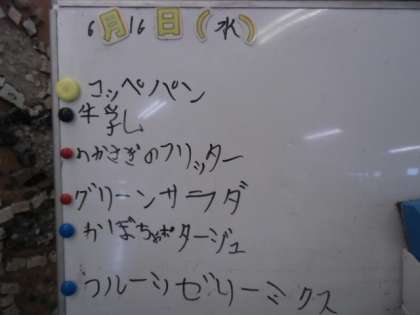 6月16日(水)
コッペパン
牛乳
わかさぎのフリッター
グリーンサラダ
かぼちゃポタージュ
フルーツゼリーミックス